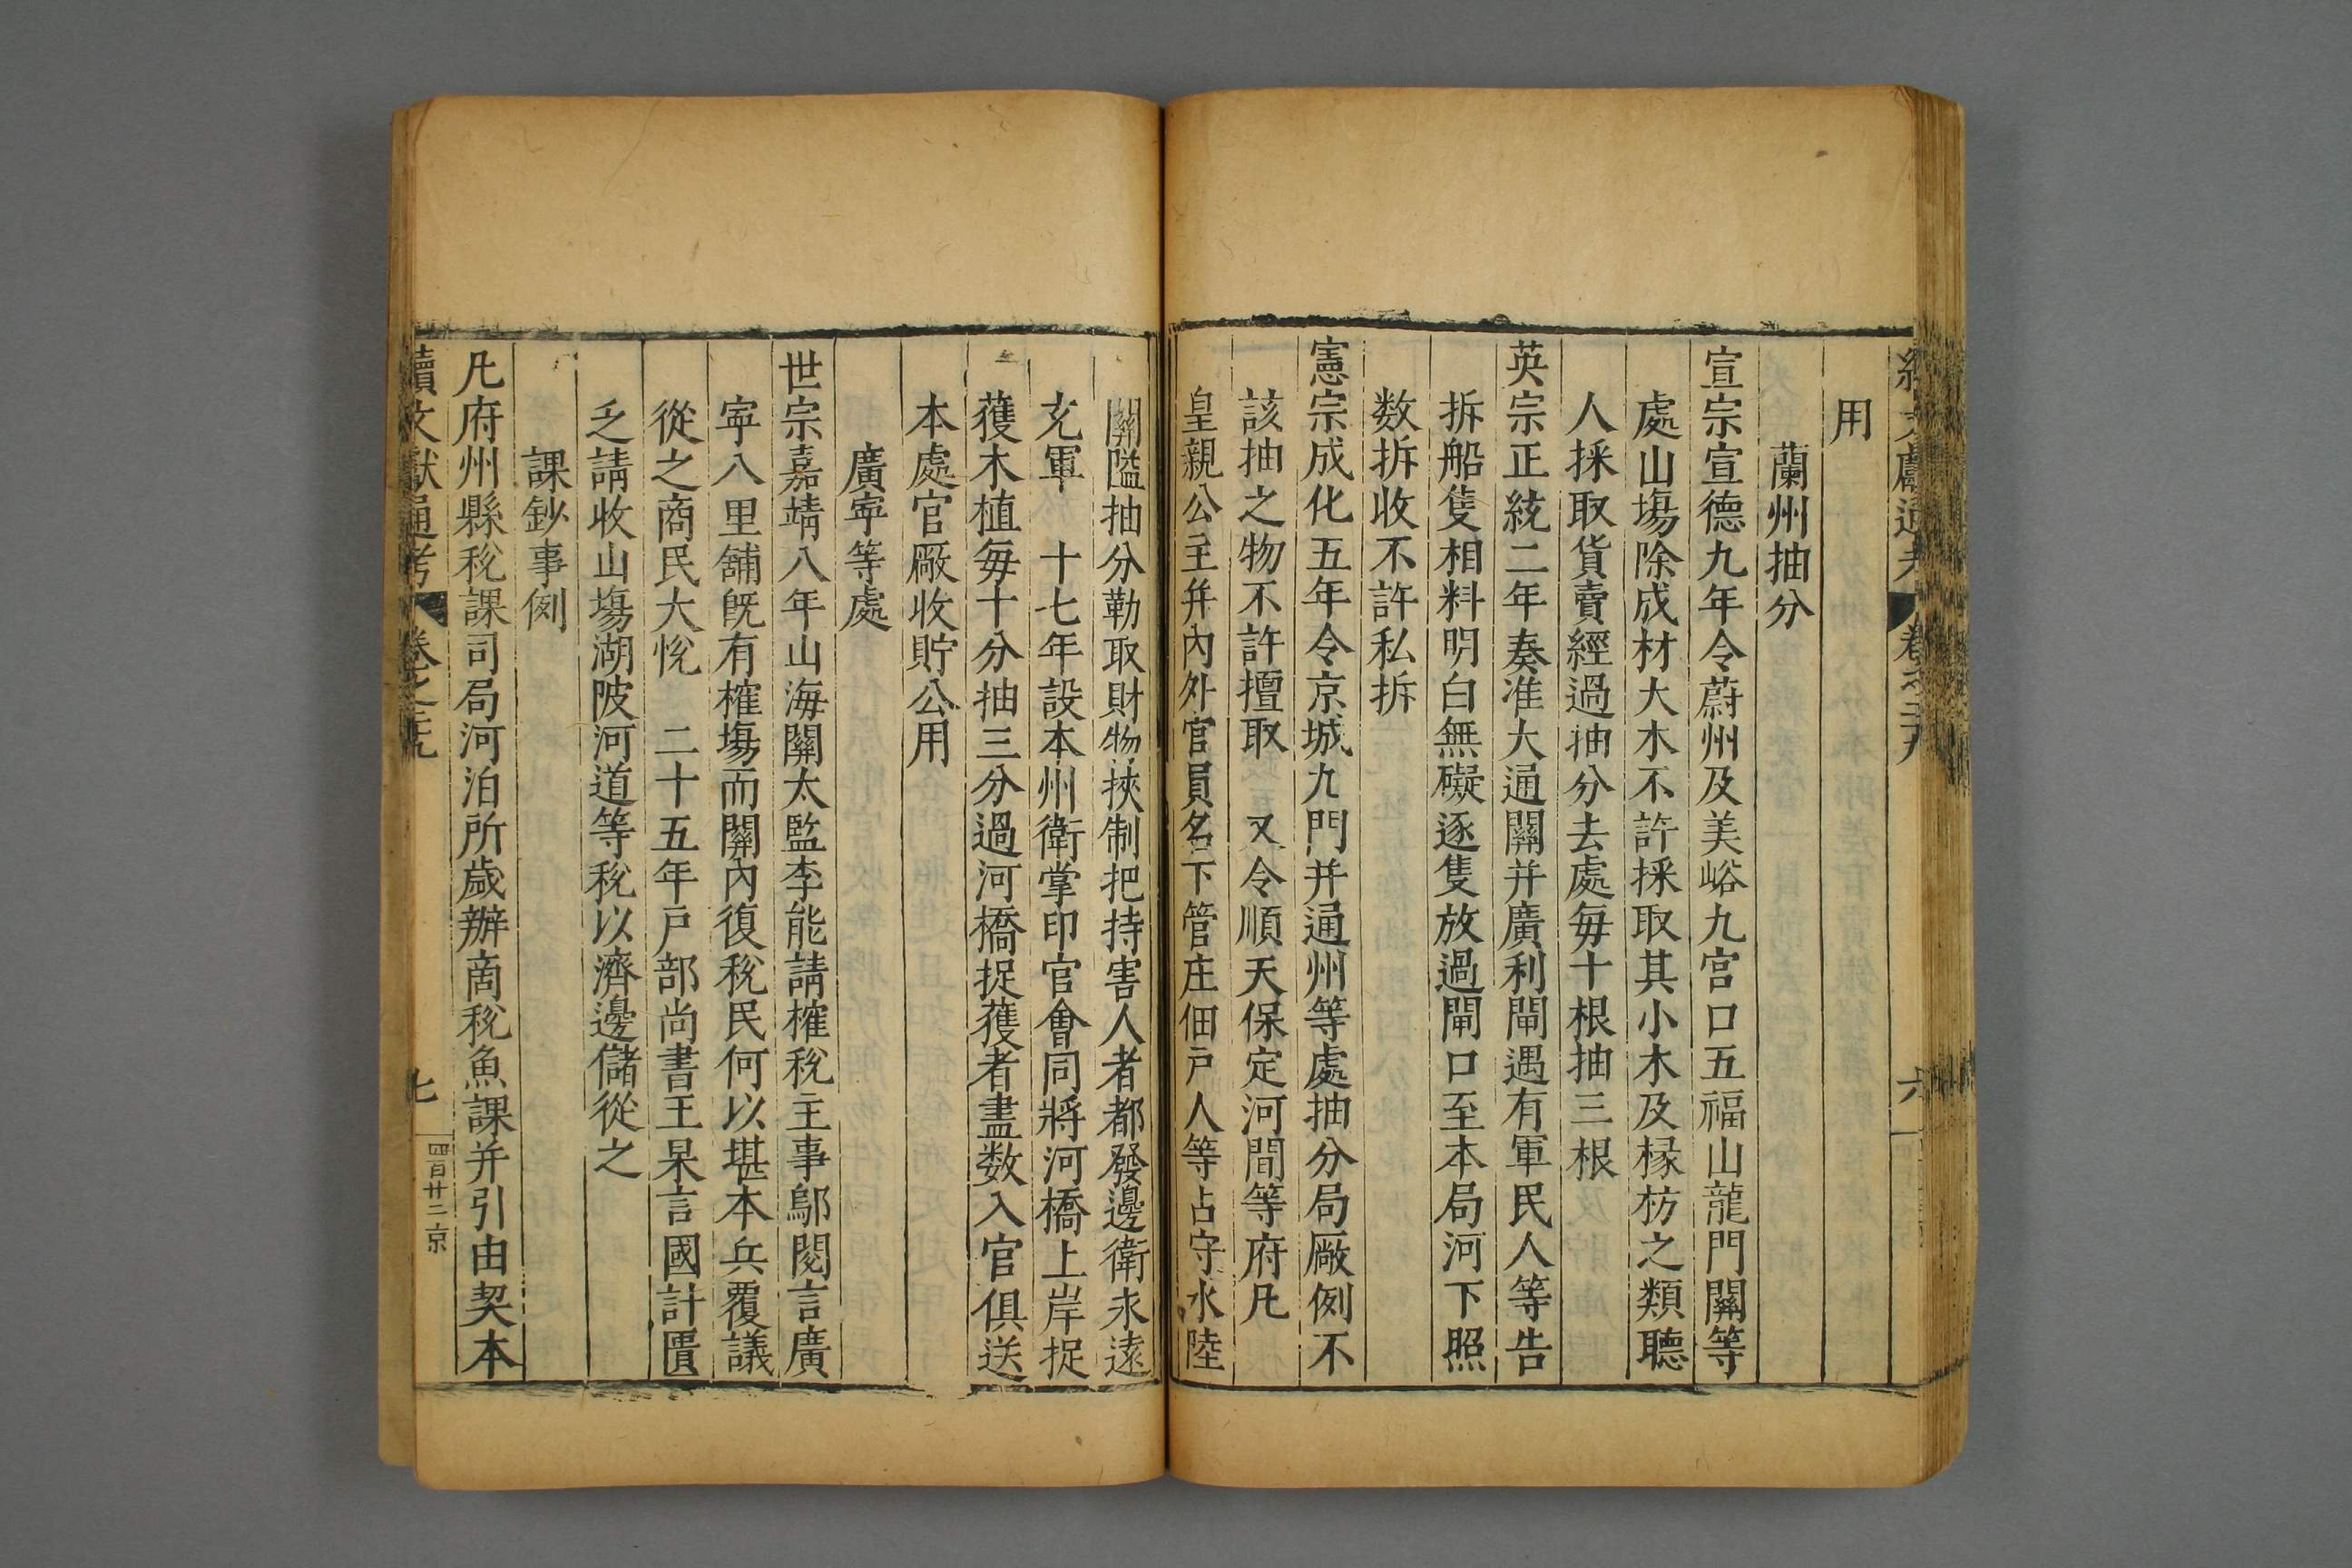 續文獻通考 卷之二十九 六
用
蘭州抽分
宣宗宣德九年令蔚州及美峪九宮口五福山龍門關等
處山塲除成材大木不許採取其小木及椽枋之類聽
人採取貨賣經過抽分去處每十根抽三根
英宗正統二年奏准大通關并廣利閘遇有軍民人等告
拆船隻相料明白無礙逐隻放過閘口至本局河下照
数拆收不許私拆
憲宗成化五年令京城九門并通州等處抽分局廠例不
該抽之物不許擅取 又令順天保定河間等府凡
皇親公主并內外官員名下管庄佃戶人等占守水陸
關隘抽分勒取財物挾制把持害人者都發邊衛永遠
充軍 十七年設本州衛掌印官會同將河橋上岸捉
獲木植每十分抽三分過河橋捉獲者盡数入官俱送
本處官廠收貯公用
廣寧等處
世宗嘉靖八年山海關太監李能請榷稅主事鄔閱言廣
寧八里舖既有榷塲而關內復稅民何以堪本兵覆議
從之商民大悅 二十五年戶部尚書王杲言國計匱
乏請收山塲湖陂河道等稅以濟邊儲從之
課鈔事例
凡府州縣稅課司局河泊所歲辦商稅魚課并引由契本
續文獻通考 卷之二十九 七 四百廿二 京